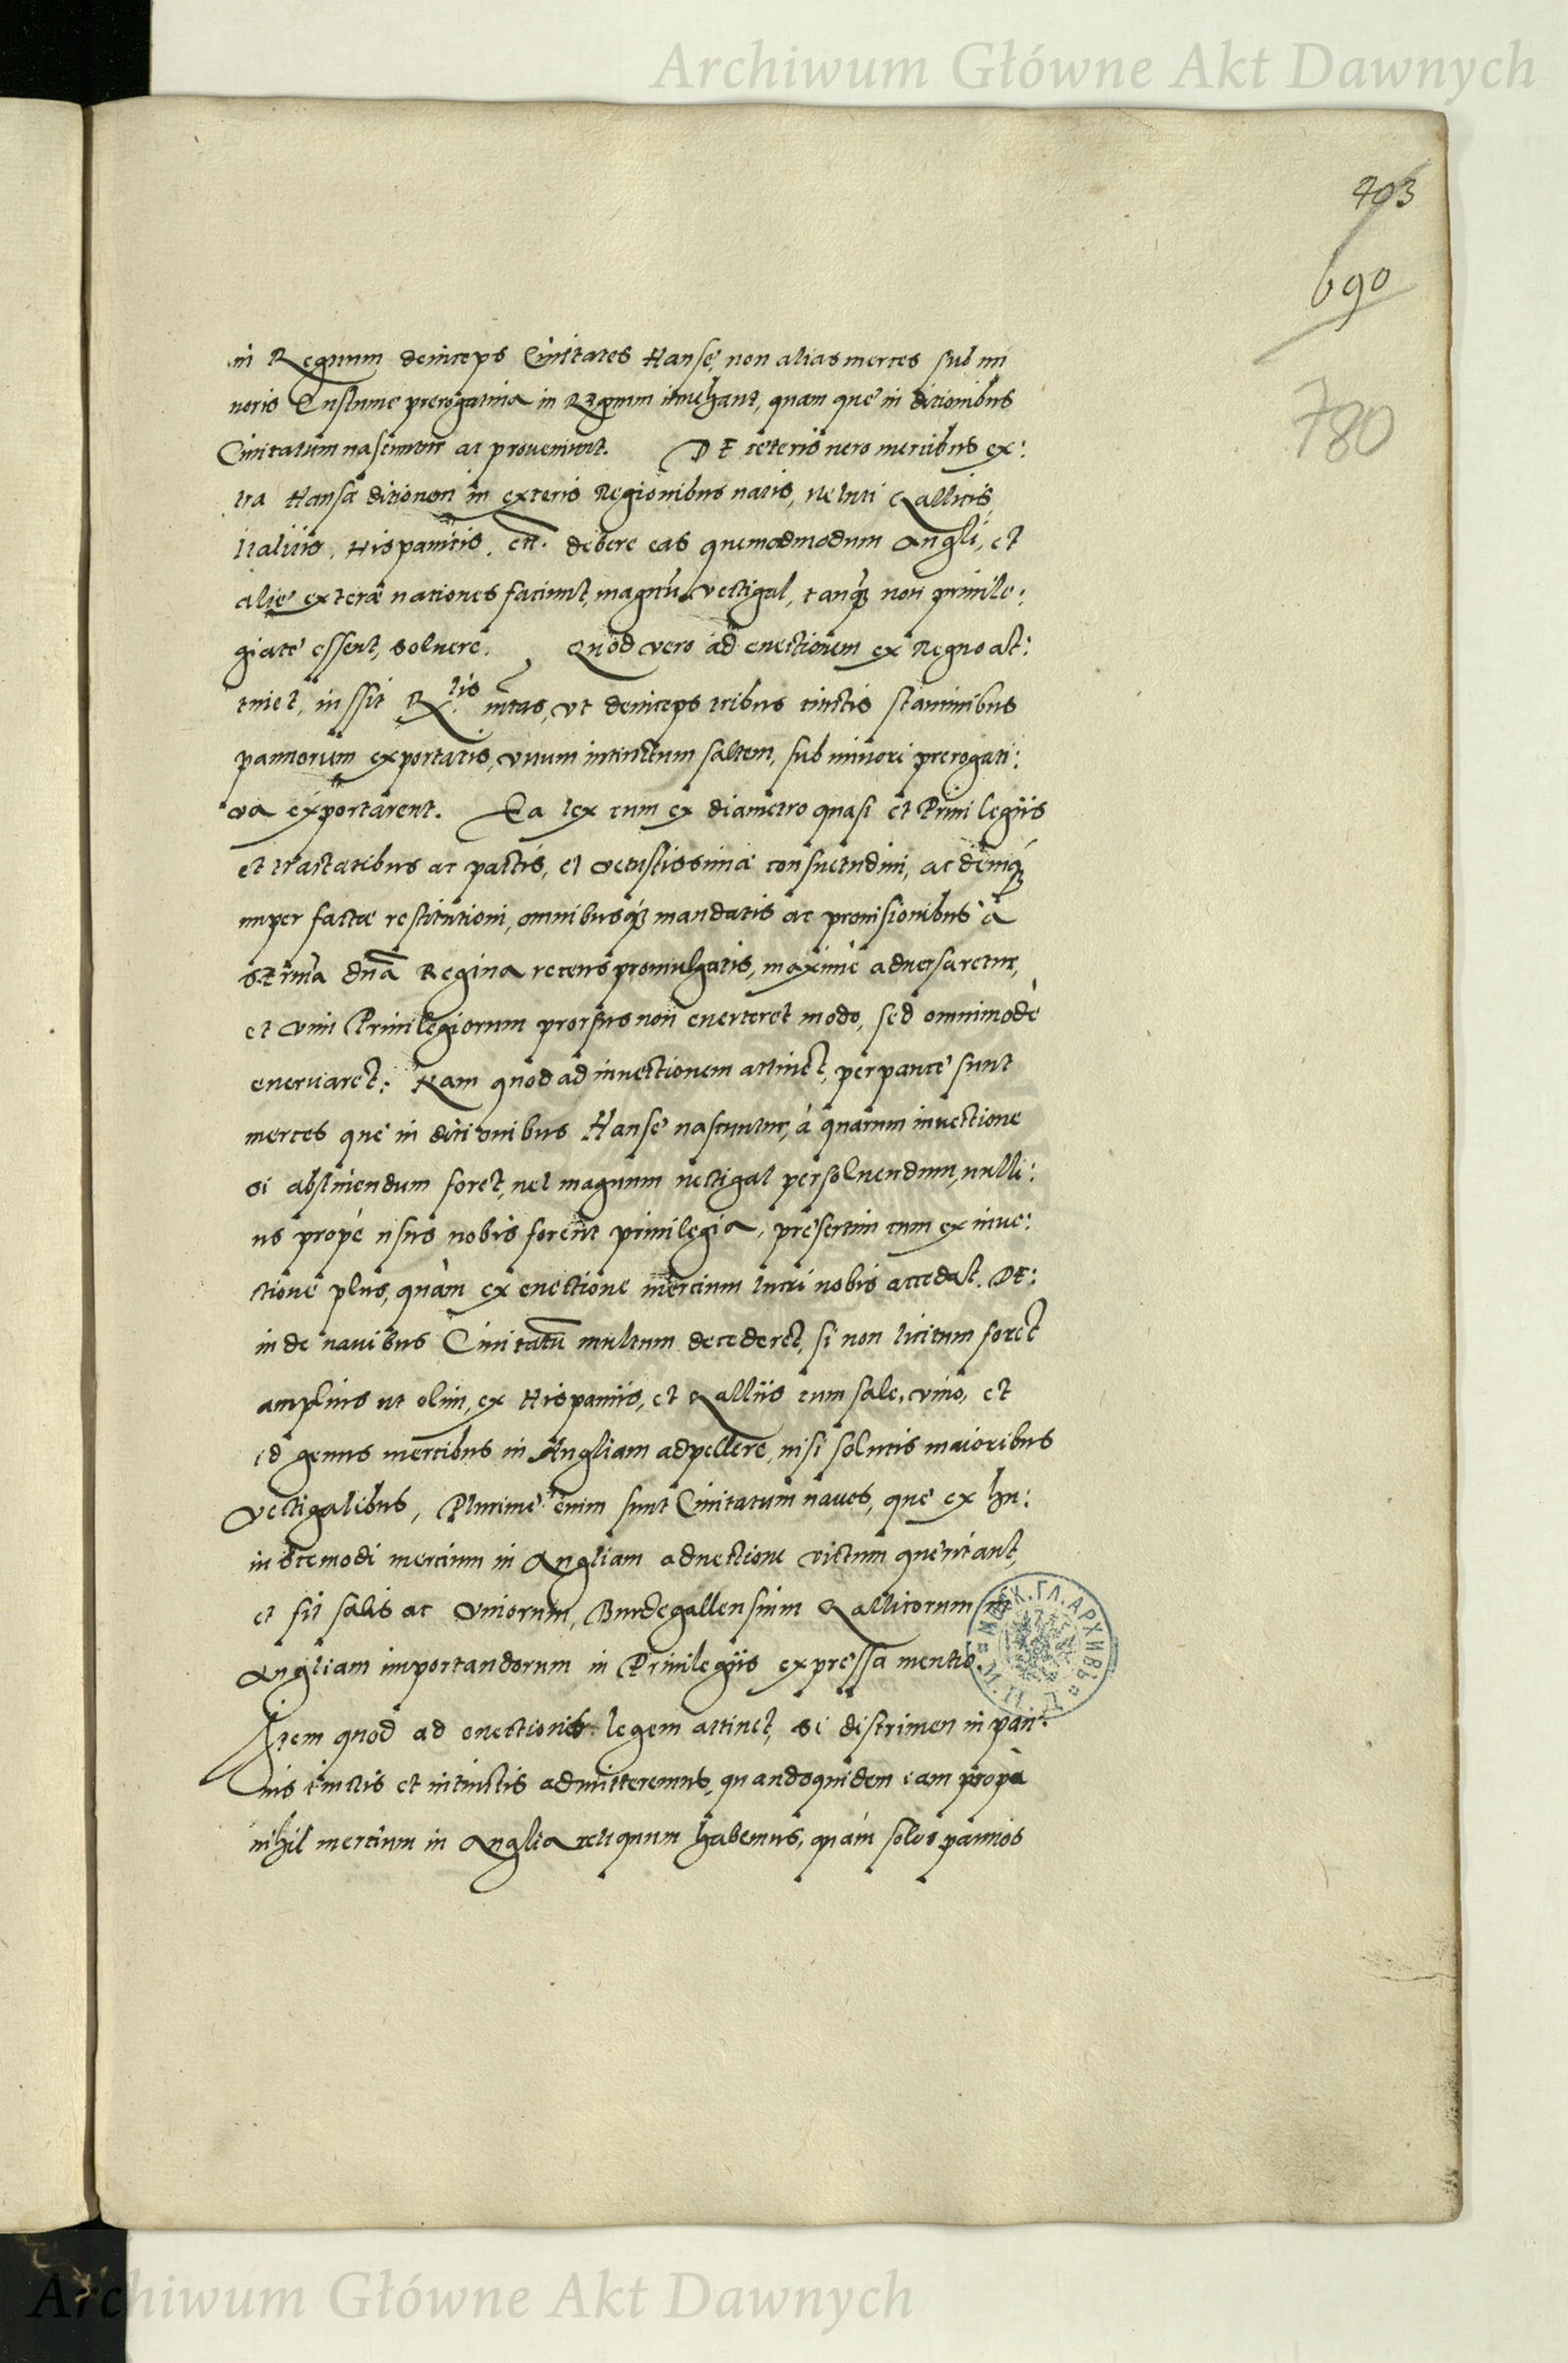 Archiwum Główne Akt Dawnych
403
690
780
in Regnum deinceps Ciuitates Hansę, non alias merces sub mi
noris Custume prerogatiua in Regnum inuehant, quam quę in ditionibus
Ciuitatum nascuntur ac proueniunt. DE ceteris uero mercibus ex:
tra Hansæ ditionem in exteris Regionibus natis, ueluti Gallicis,
Italicis, Hispanicis, etc. debere eas quemadmodum Angli, et
alię exteræ nationes faciunt, magnũ vectigal, tanq̃ȝ non priuile:
giatę essent, soluere. Quod vero ad euectionem ex Regno att:
tinet, iussit R.tis mtas, vt deinceps tribus tinctis staminibus
pannorum exportatis, vnum intinctum saltem, sub minori prerogati:
va exportarent. Ea lex cum ex diametro quasi et Priuilegijs
et tractatibus ac pactis, et vetustissimæ consuetudini, ac deniqȝ
nuper factæ restitutioni, omnibusqȝ mandatis ac prouisionibus à
Serma dnã Regina recens promulgatis, maximè aduersaretur,
et vim Priuilegiorum prorsus non euerteret modo, sed omnimodè
eneruaret: Nam quod ad inuectionem attinet, perpaucę sunt
merces quę in ditionibus Hansę nascuntur, à quarum inuectione
si abstinendum foret, uel magnum uectigal persoluendum, nulli:
us propè usus nobis forent priuilegia, pręsertim cum ex inue:
ctione plus, quàm ex euectione mercium lucri nobis accedat. DE:
inde nauibus Ciuitatũ multum decederet, si non licitum foret
amplius ut olim, ex Hispanijs, et Gallijs cum sale, vino, et
id genus mercibus in Angliam adpellere, nisi solutis maioribus
vectigalibus, Plurimę enim sunt Ciuitatum naues, quę ex hu:
iuscemodi mercium in Angliam aduectione victum quęritant,
et fit salis ac vinorum, Burdegallensium Gallicorum in
Angliam importandorum in Priuilegijs expressa mentio.
Item quod ad euectionis legem attinet, si discrimen in pan:
nis tinctis et intinctis admitteremus, quandoquidem iam propè
nihil mercium in Anglia reliquum habemus, quàm solos pannos
Archiwum Główne Akt Dawnych